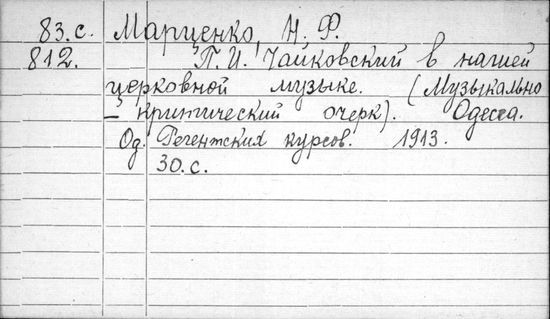 83.с. Марценко, Н. Ф.
812. П. И. Чайковский в нашей
церковной музыке. (Музыкально
- критический очерк). Одесса.
Од. Регентских курсов. 1913.
30.с.